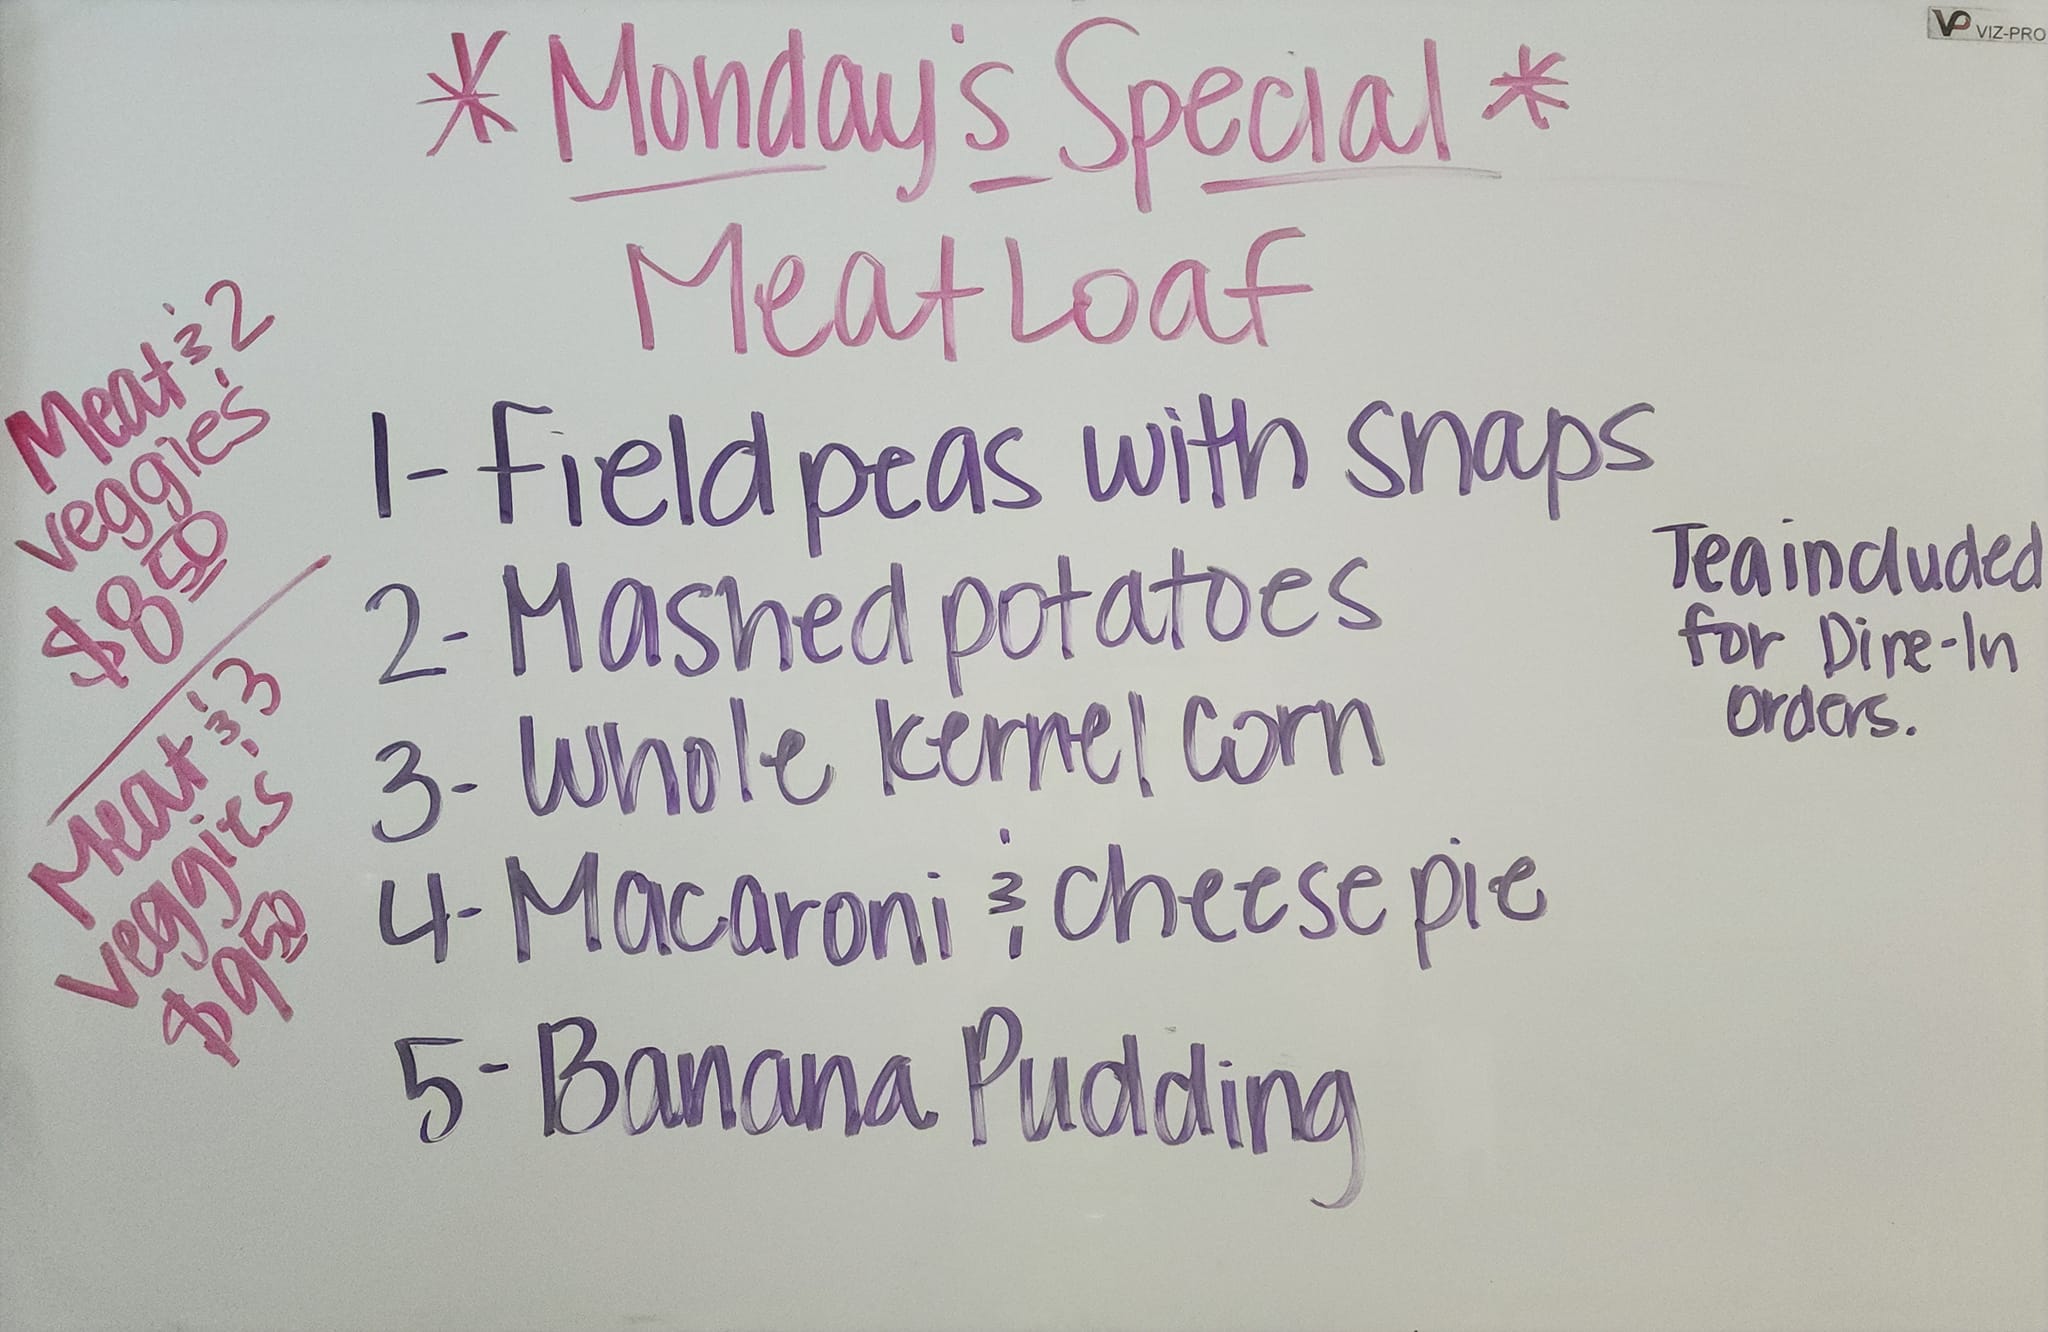 VP VIZ-PRO
* Monday's Special *
Meat Loaf
Meat & 2
veggies
$8.50
Meat & 3
veggies
$9.50
1- Field peas with snaps
2- Mashed potatoes
3- Whole kernel corn
4- Macaroni & cheese pie
5- Banana Pudding
Tea included
for Dine-In
orders.